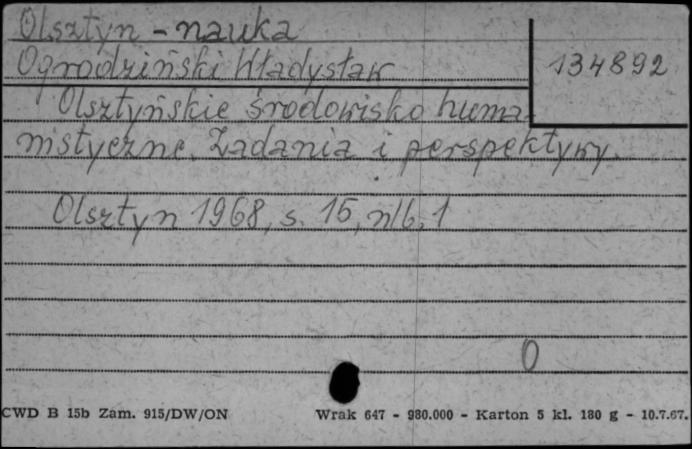 Olsztyn - nauka
Ogrodziński Władysław
134892
Olsztyńskie środowisko huma-
nistyczne. Zadania i perspektywy.
Olsztyn 1968, s. 15, nlb. 1
0
CWD B 15b Zam. 915/DW/ON Wrak 647 - 980.000 - Karton 5 kl. 180 g - 10.7.67.